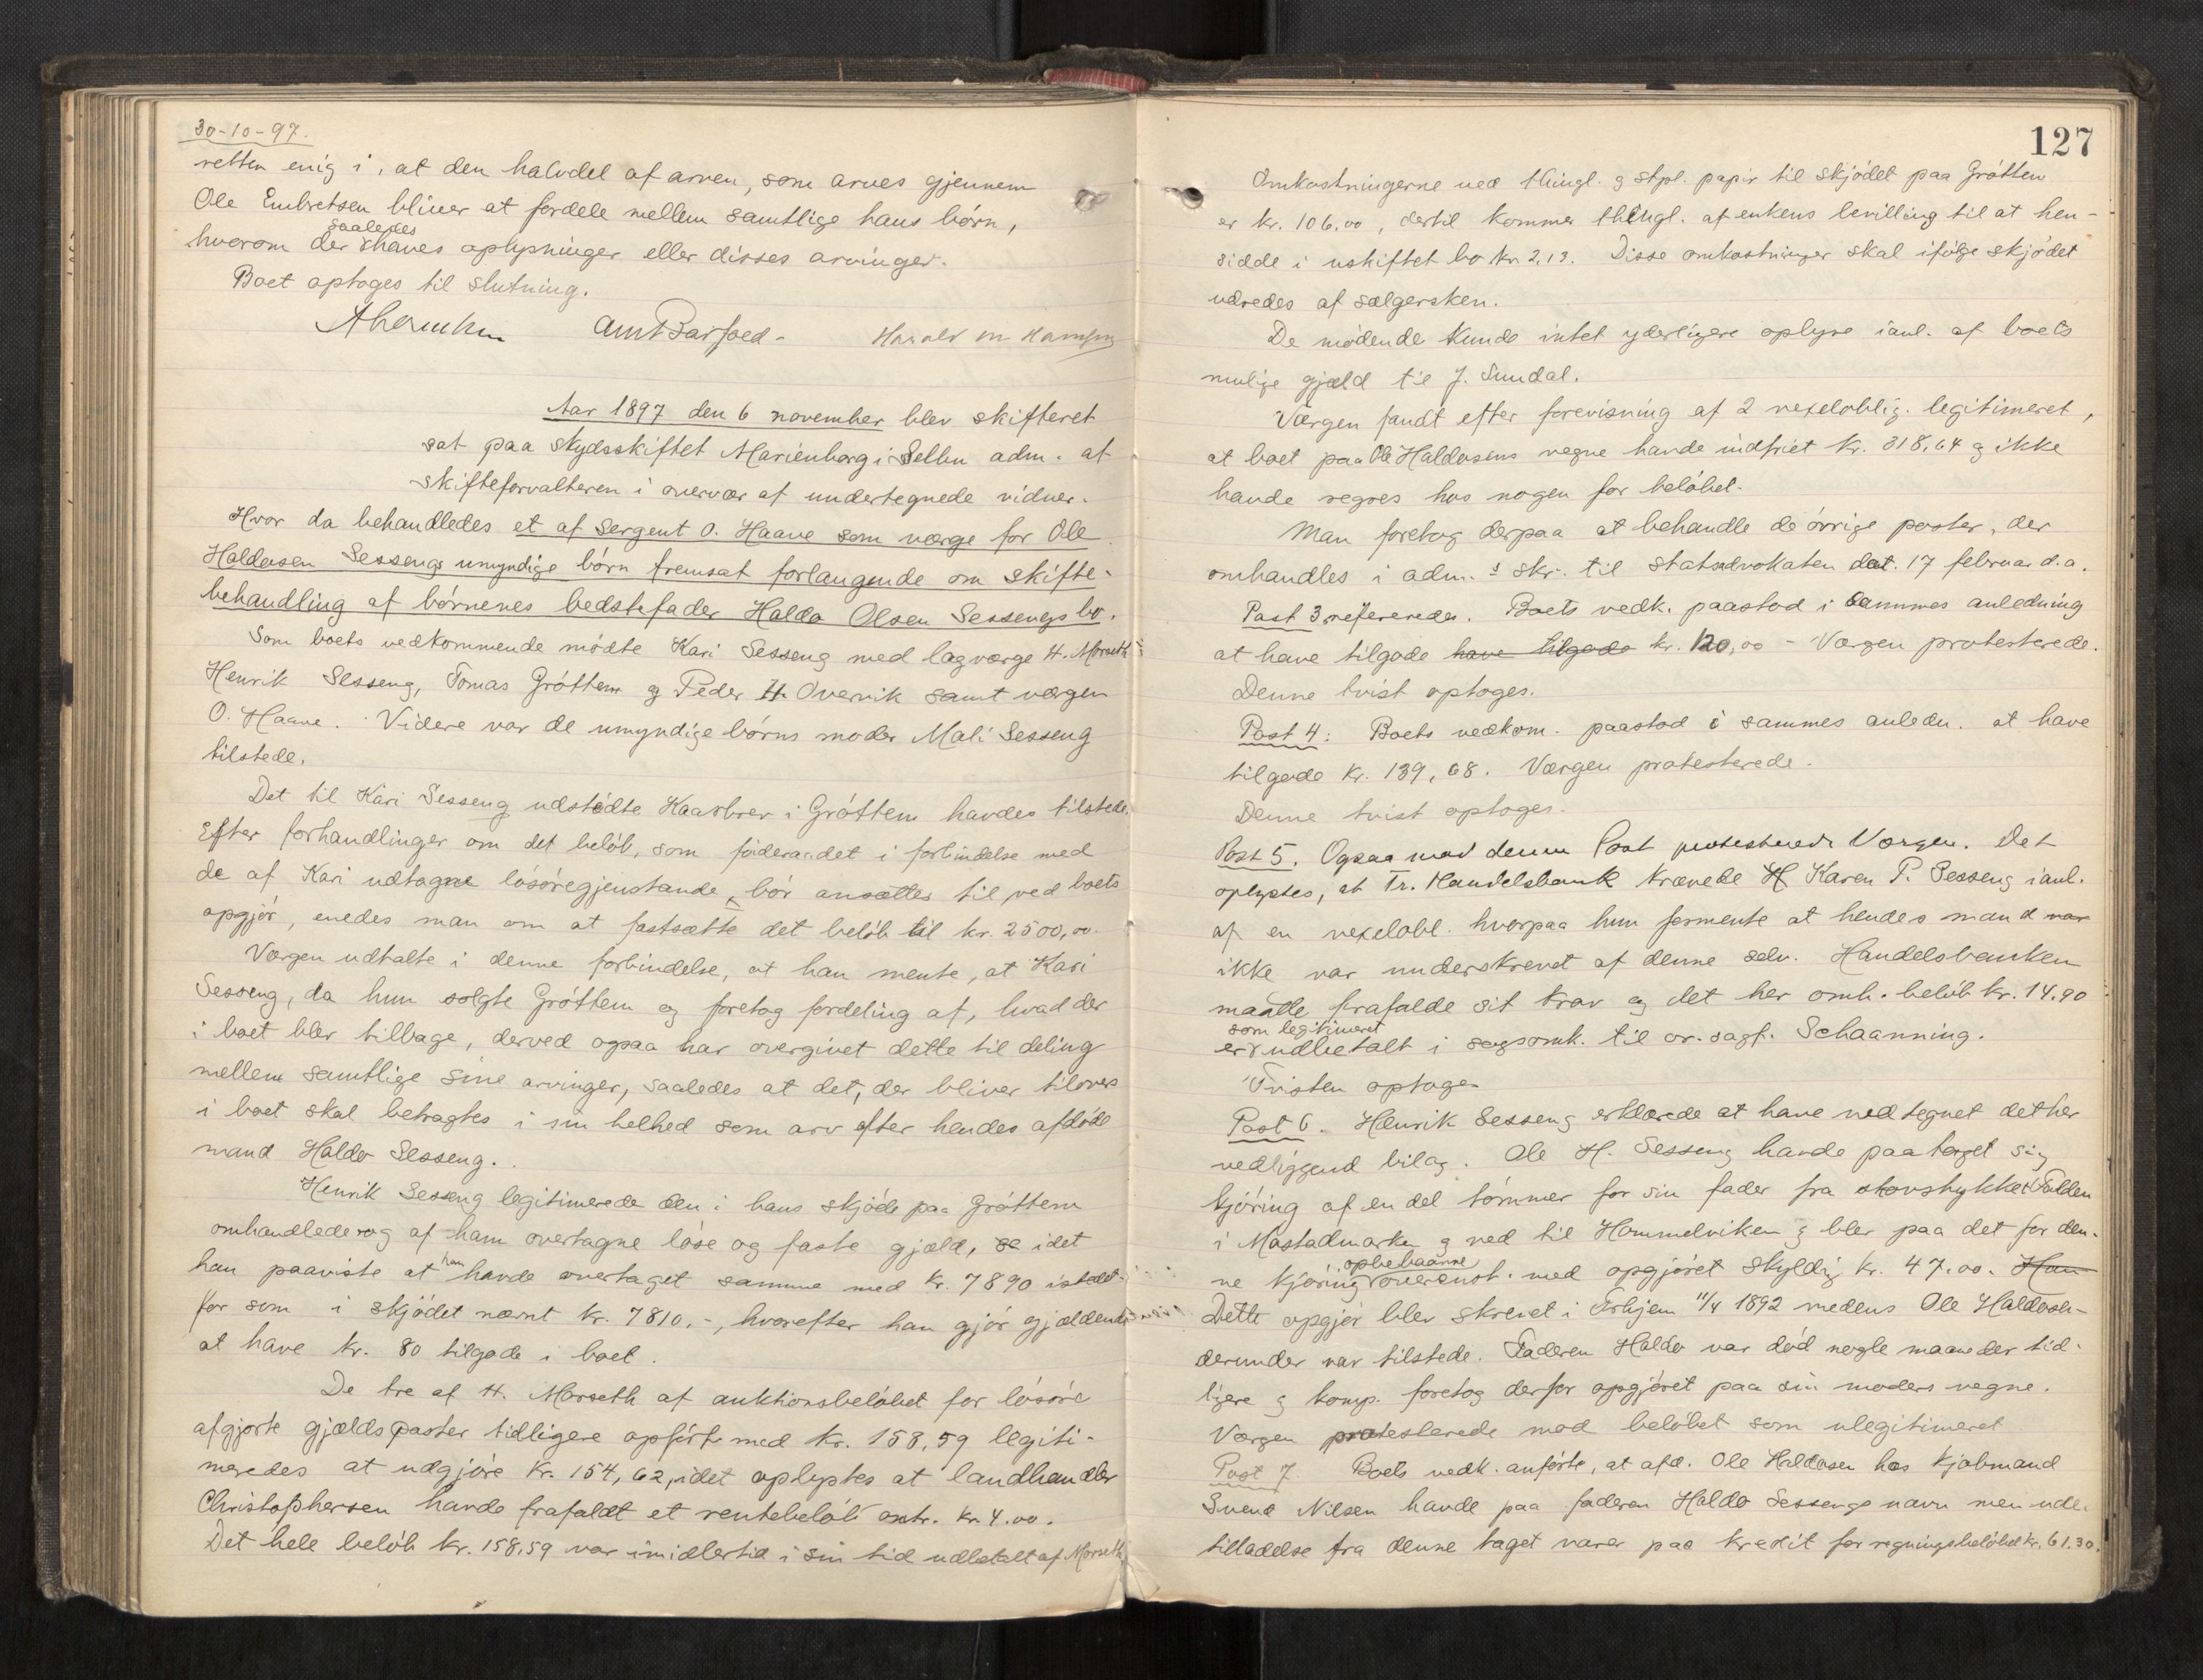 30-10-97.
retten enig i, at den halvdel af arven, som arves gjennem
Ole Embretsen bliver at fordele mellem samtlige hans børn,
saaledes
hvorom der haves oplysninger eller disses arvinger.
Boet optoges til slutning.
Aar 1897 den 6 november blev skifteret
sat paa skydsskiftet Marienborg i Selbu adm. af
skifteforvalteren i overvær af undertegnede vidner.
Hvor da behandledes et af Sergent O. Haave som værge for Ole
Haldosen Sessengs umyndige børn fremsat forlangende om skifte-
behandling af børnenes bedstefader Haldo Olsen Sessengs bo.
Som boets vedkommende mødte Kari Sesseng med lagværge H. Morseth
Henrik Sesseng, Tomas Grøttem og Peder H. Overvik samt værgen
O. Haave. Videre var de umyndige børns moder Mali Sesseng
tilstede.
Det til Kari Sesseng udstedte Kaarbrev i Grøttem havdes tilstede.
Efter forhandlinger om det beløb, som føderaadet i forbindelse med
de af Kari udtagne løsøregjenstande, bør ansættes til ved boets
opgjør, enedes man om at fastsætte det beløb til kr. 2500,00.
Værgen udtalte i denne forbindelse, at han mente, at Kari
Sesseng, da hun solgte Grøttem og foretog fordeling af, hvad der
i boet blev tilbage, derved ogsaa har overgivet dette til deling
mellem samtlige sine arvinger, saaledes at det, der bliver tilovers
i boet skal betragtes i sin helhed som arv efter hendes afdøde
mand Haldo Sesseng.
Henrik Sesseng legitimerede den i hans skjøde paa Grøttem
omhandlede og af ham overtagne løse og faste gjæld, se idet
han paaviste at han havde overtaget samme med kr. 7890 istedet-
for som i skjødet nævnt kr. 7810.-, hvorefter han gjør gjældende
at have kr. 80 tilgode i boet.
De tre af H. Morseth af auktionsbeløbet for løsøre
afgjorte gjældsposter tidligere opført med kr. 158,59 legiti-
meredes at udgjøre kr. 154,62, idet oplystes at landhandler
Christophersen havde frafaldt et rentebeløb ontr. kr. 4.00.
Det hele beløb kr. 158,59 var imidlertid i sin tid udbetalt af Morseth
127
Omkostningerne ved thingl. og stpl. papir til skjødet paa Grøtten
er kr. 106.00, dertil kommer thingl. af enkens bevilling til at hen-
sidde i uskiftet bo kr. 2,13. Disse omkostninger skal ifølge skjødet
udredes af sælgersken.
De mødende kunde intet yderligere oplyse ianl. af boets
mulige gjæld til J. Sundal.
Værgen fandt efter forevisning af 2 vexeloblig. legitimeret,
at boet paa Ole Haldosens vegne havde indfriet kr. 318,64 og ikke
havde regres hos nogen for beløbet.
Man foretog derpaa at behandle de øvrige poster, der
omhandles i adm.s skr. til statsadvokaten dat. 17 februar d.a.
Post 3 refereredes. Boets vedk. paastod i sammes anledning
at have tilgode have tilgode kr. 120,00 - Værgen protesterede.
Denne tvist optoges.
Post 4: Boets vedkom. paastod i sammes anledn. at have
tilgode kr. 139,68. Værgen protesterede.
Denne tvist optoges.
Post 5. Ogsaa mod denne Post protesterede Værgen. Det
oplystes, at Tr. Handelsbank krævede H Karen P. Sesseng ianl.
af en vexelobl. hvorpaa hun formente at hendes mand var
ikke var underskrevet af denne selv. Handelsbanken
maatte frafalde sit krav og det her omh. beløb kr. 14.90
som legitimeret
er udbetalt i sagsomk. til or. sagf. Schaanning.
Tvisten optoges
Post 6. Henrik Sesseng erklærede at have nedtegnet det her
vedliggend bilag. Ole H. Sesseng havde paataget sig
kjøring af en del tømmer for sin fader fra skovstykket Falden
i Mostadmarken og ned til Hommelviken og blev paa det for den-
opbebaarne
ne kjøring overensk. med opgjøret skyldig kr. 47.00. Han
Dette opgjør blev skrevet i Terhjem 11/4 1892 medens Ole Haldosen
derunder var tilstede. Faderen Haldo var død nogle maaneder tid-
ligere og komp. foretog derfor opgjøret paa sin moders vegne.
Værgen protesterede mod beløbet som ulegitimeret
Post 7 Boets vedk. anførte, at afd. Ole Haldosen hos kjøbmand
Svend Nilsen havde paa faderen Haldo Sessengs navn men uden
tilladelse fra denne taget varer paa kredit for regningsbeløbet kr. 61.30.